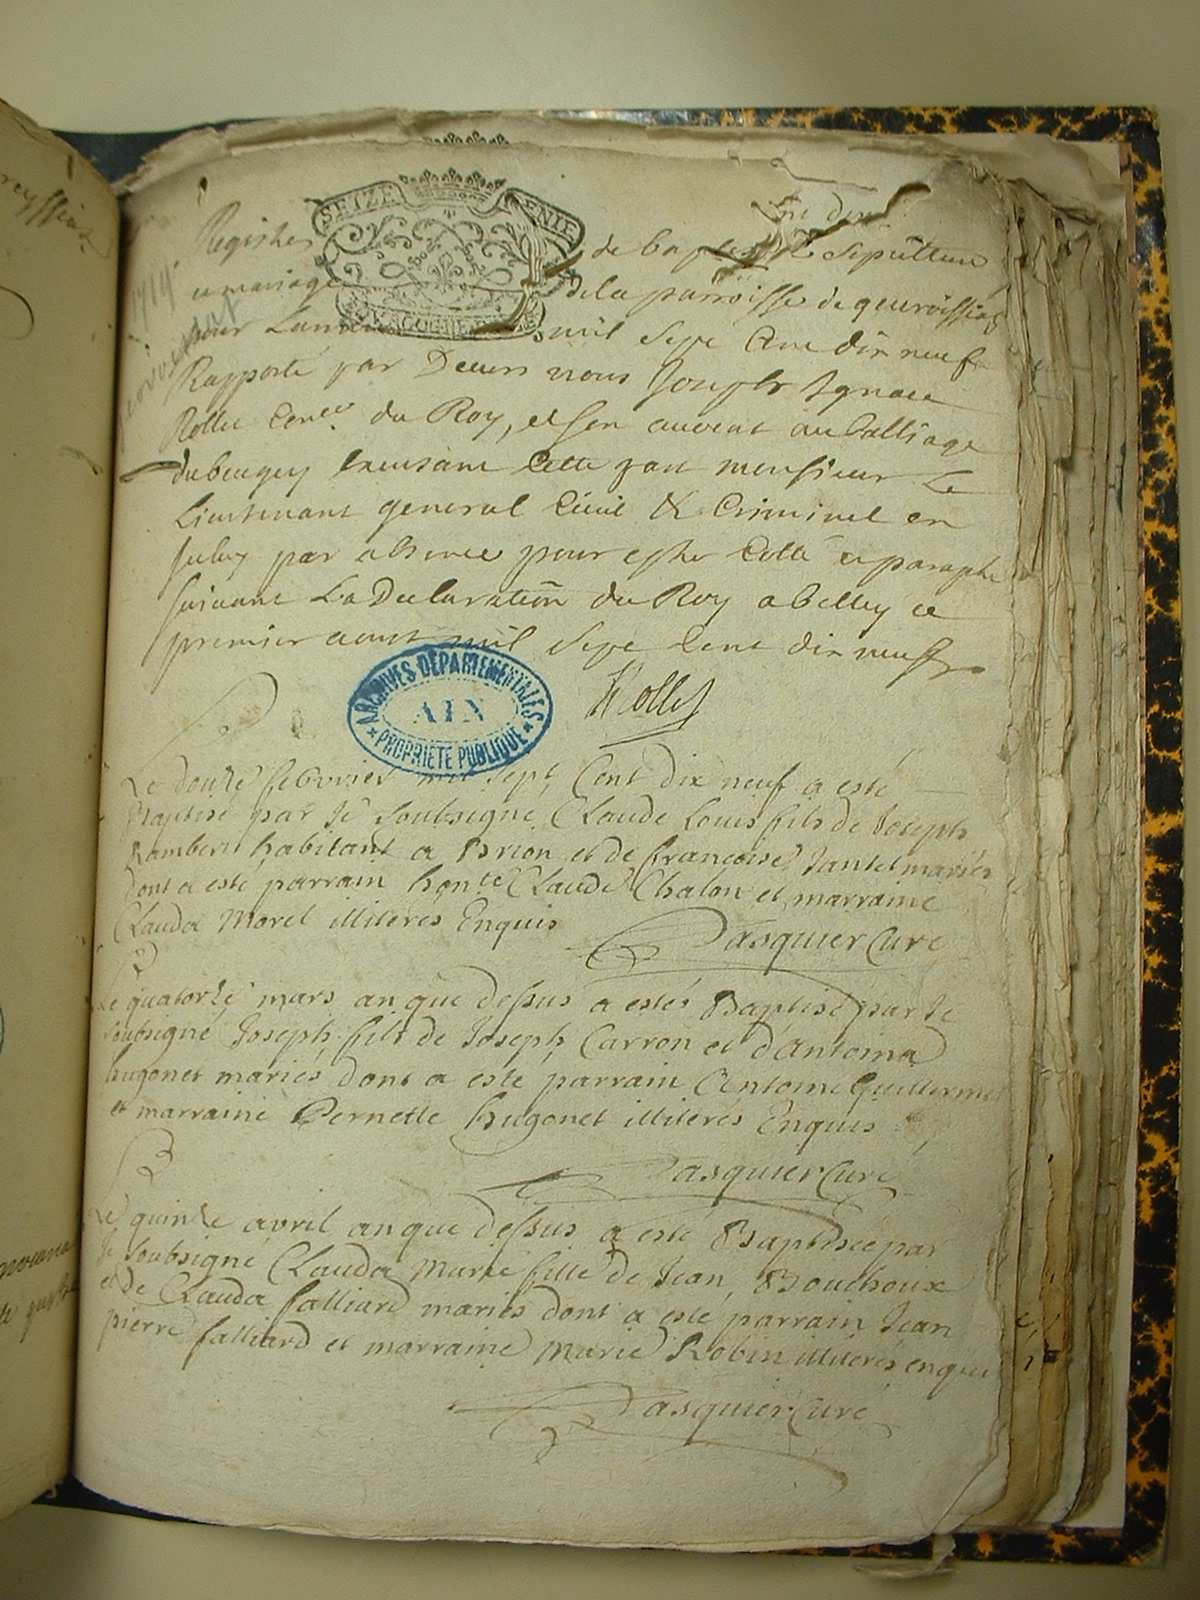 SEIZE DENIE
Registre de baptesme & sepulture
et mariage de la parroisse de gevroissiat
pour Lannée mil sept Cent dix neuf
Rapporté par Devers nous Joseph Ignace
Rollet Con.er du Roy, et son avocat au balliage
du beugey exersant Cette part monsieur Le
Lieutenant general Civil & Criminel en
par absence pour estre Cotté et paraphe
suivant La Declaration du Roy a belley ce
premier aoust mil sept Cent dix neuf
Rollet
ARCHIVES DÉPARTEMENTALES
AIN
* PROPRIÉTÉ PUBLIQUE *
Le douze febvrier mil sept Cent dix neuf a esté
Baptisé par Je soubsigné Claude Louis fils de Joseph
Rambert habitant a Brion et de francoise Jantet mariés
dont a esté parrain hon.te Claude Chalon et marraine
Clauda Morel illiteres Enquis
Pasquier Curé
Le quatorze mars an que dessus a estés Baptisé par Je
soubsigné Joseph fils de Joseph Carron et d'Antoina
hugonet mariés dont a esté parrain Antoine Guillermet
et marraine Pernette hugonet illiterés Enquis
Pasquier Curé
Le quinze avril an que dessus a esté Baptisée par
Je soubsigné Clauda Marie fille de Jean Bouchoux
et de Clauda falliard mariés dont a esté parrain Jean
pierre falliard et marraine Marie Robin illiterés enquis
Pasquier Curé